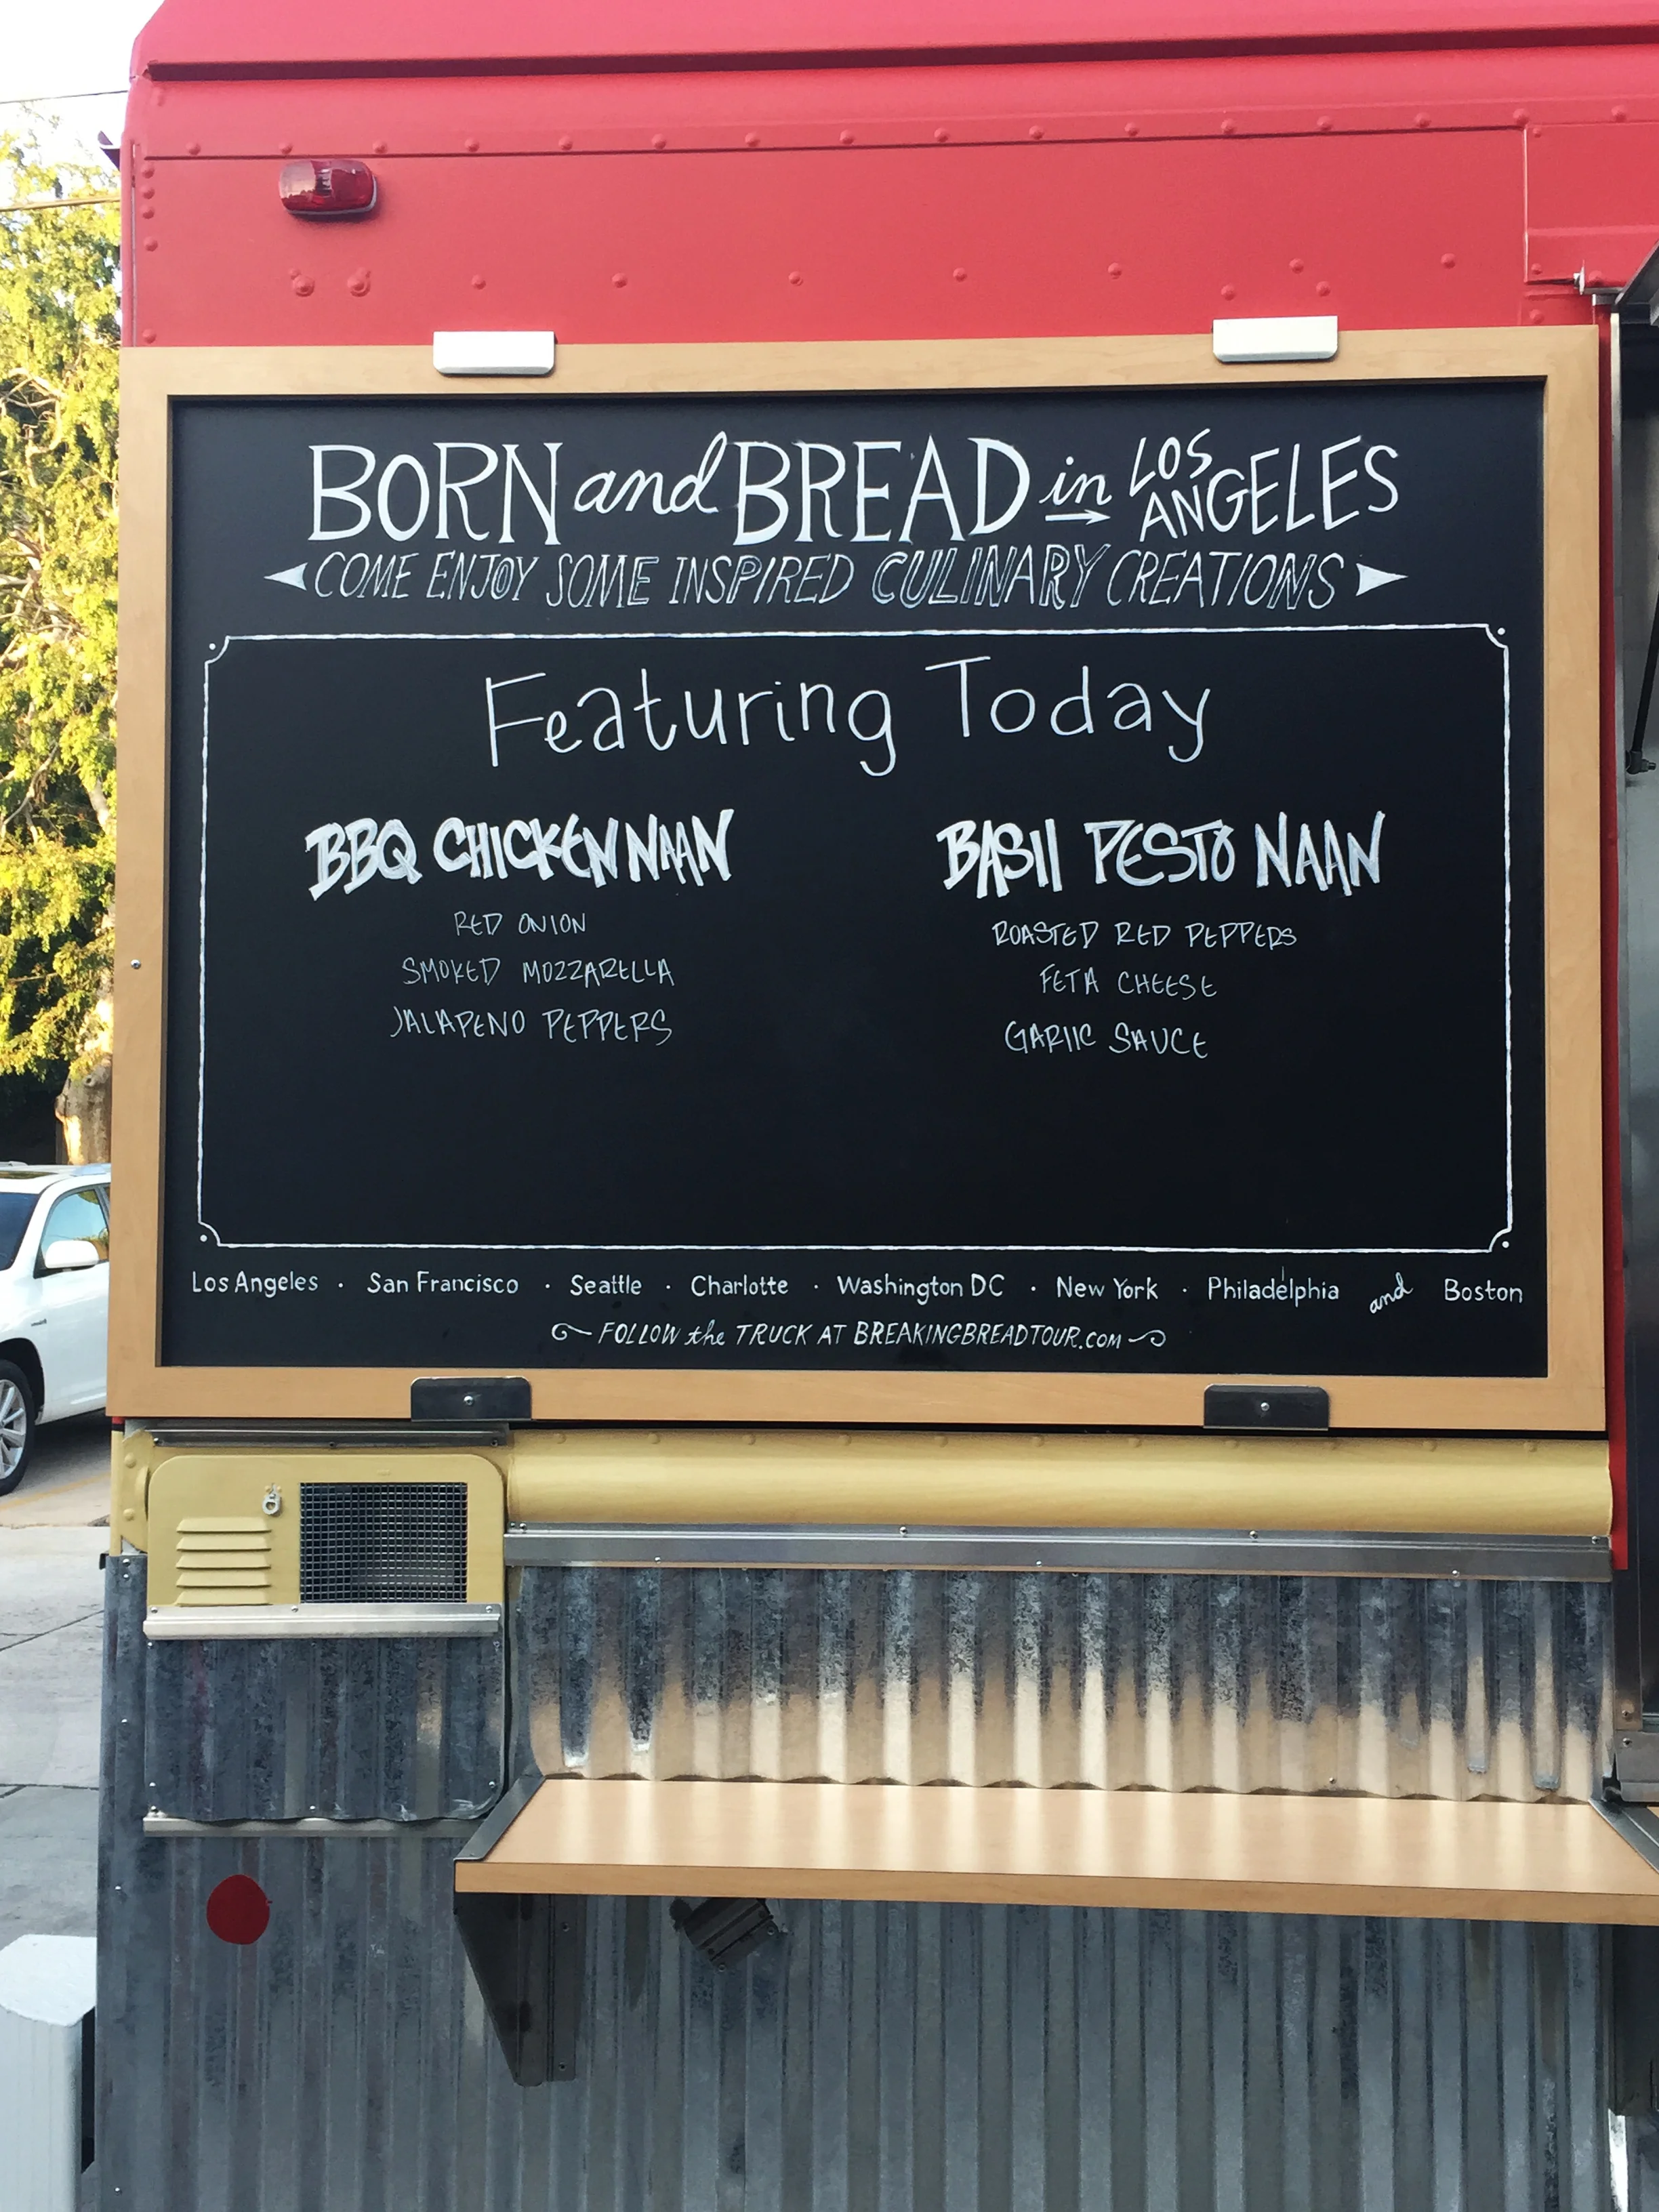 BORN and BREAD in LOS ANGELES
COME ENJOY SOME INSPIRED CULINARY CREATIONS
Featuring Today
BBQ CHICKEN NAAN
RED ONION
SMOKED MOZZARELLA
JALAPENO PEPPERS
BASIl PESTO NAAN
ROASTED RED PEPPERS
FETA CHEESE
GARlIC SAUCE
Los Angeles · San Francisco · Seattle · Charlotte · Washington DC · New York · Philadelphia and Boston
FOLLOW the TRUCK AT BREAKINGBREADTOUR.COM